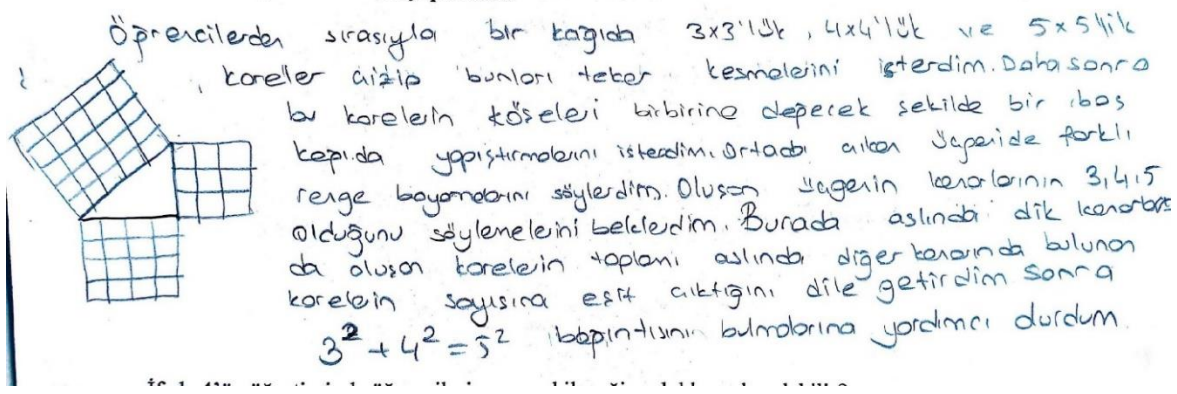 Öğrencilerden sırasıyla bir kağıda 3x3'lük, 4x4'lük ve 5x5'lik
kareler çizip bunları teker kesmelerini isterdim. Daha sonra
bu karelerin köşeleri birbirine değecek şekilde bir boş
kağıda yapıştırmalarını isterdim. Ortada çıkan üçgeni de farklı
renge boyamalarını söylerdim. Oluşan üçgenin kenarlarının 3,4,5
olduğunu söylemelerini beklerdim. Burada aslında dik kenarlar
da oluşan karelerin toplamı aslında diğer kenarında bulunan
karelerin sayısına eşit çıktığını dile getirdim sonra
3² + 4² = 5² bağıntısının bulmalarına yardımcı durdum.